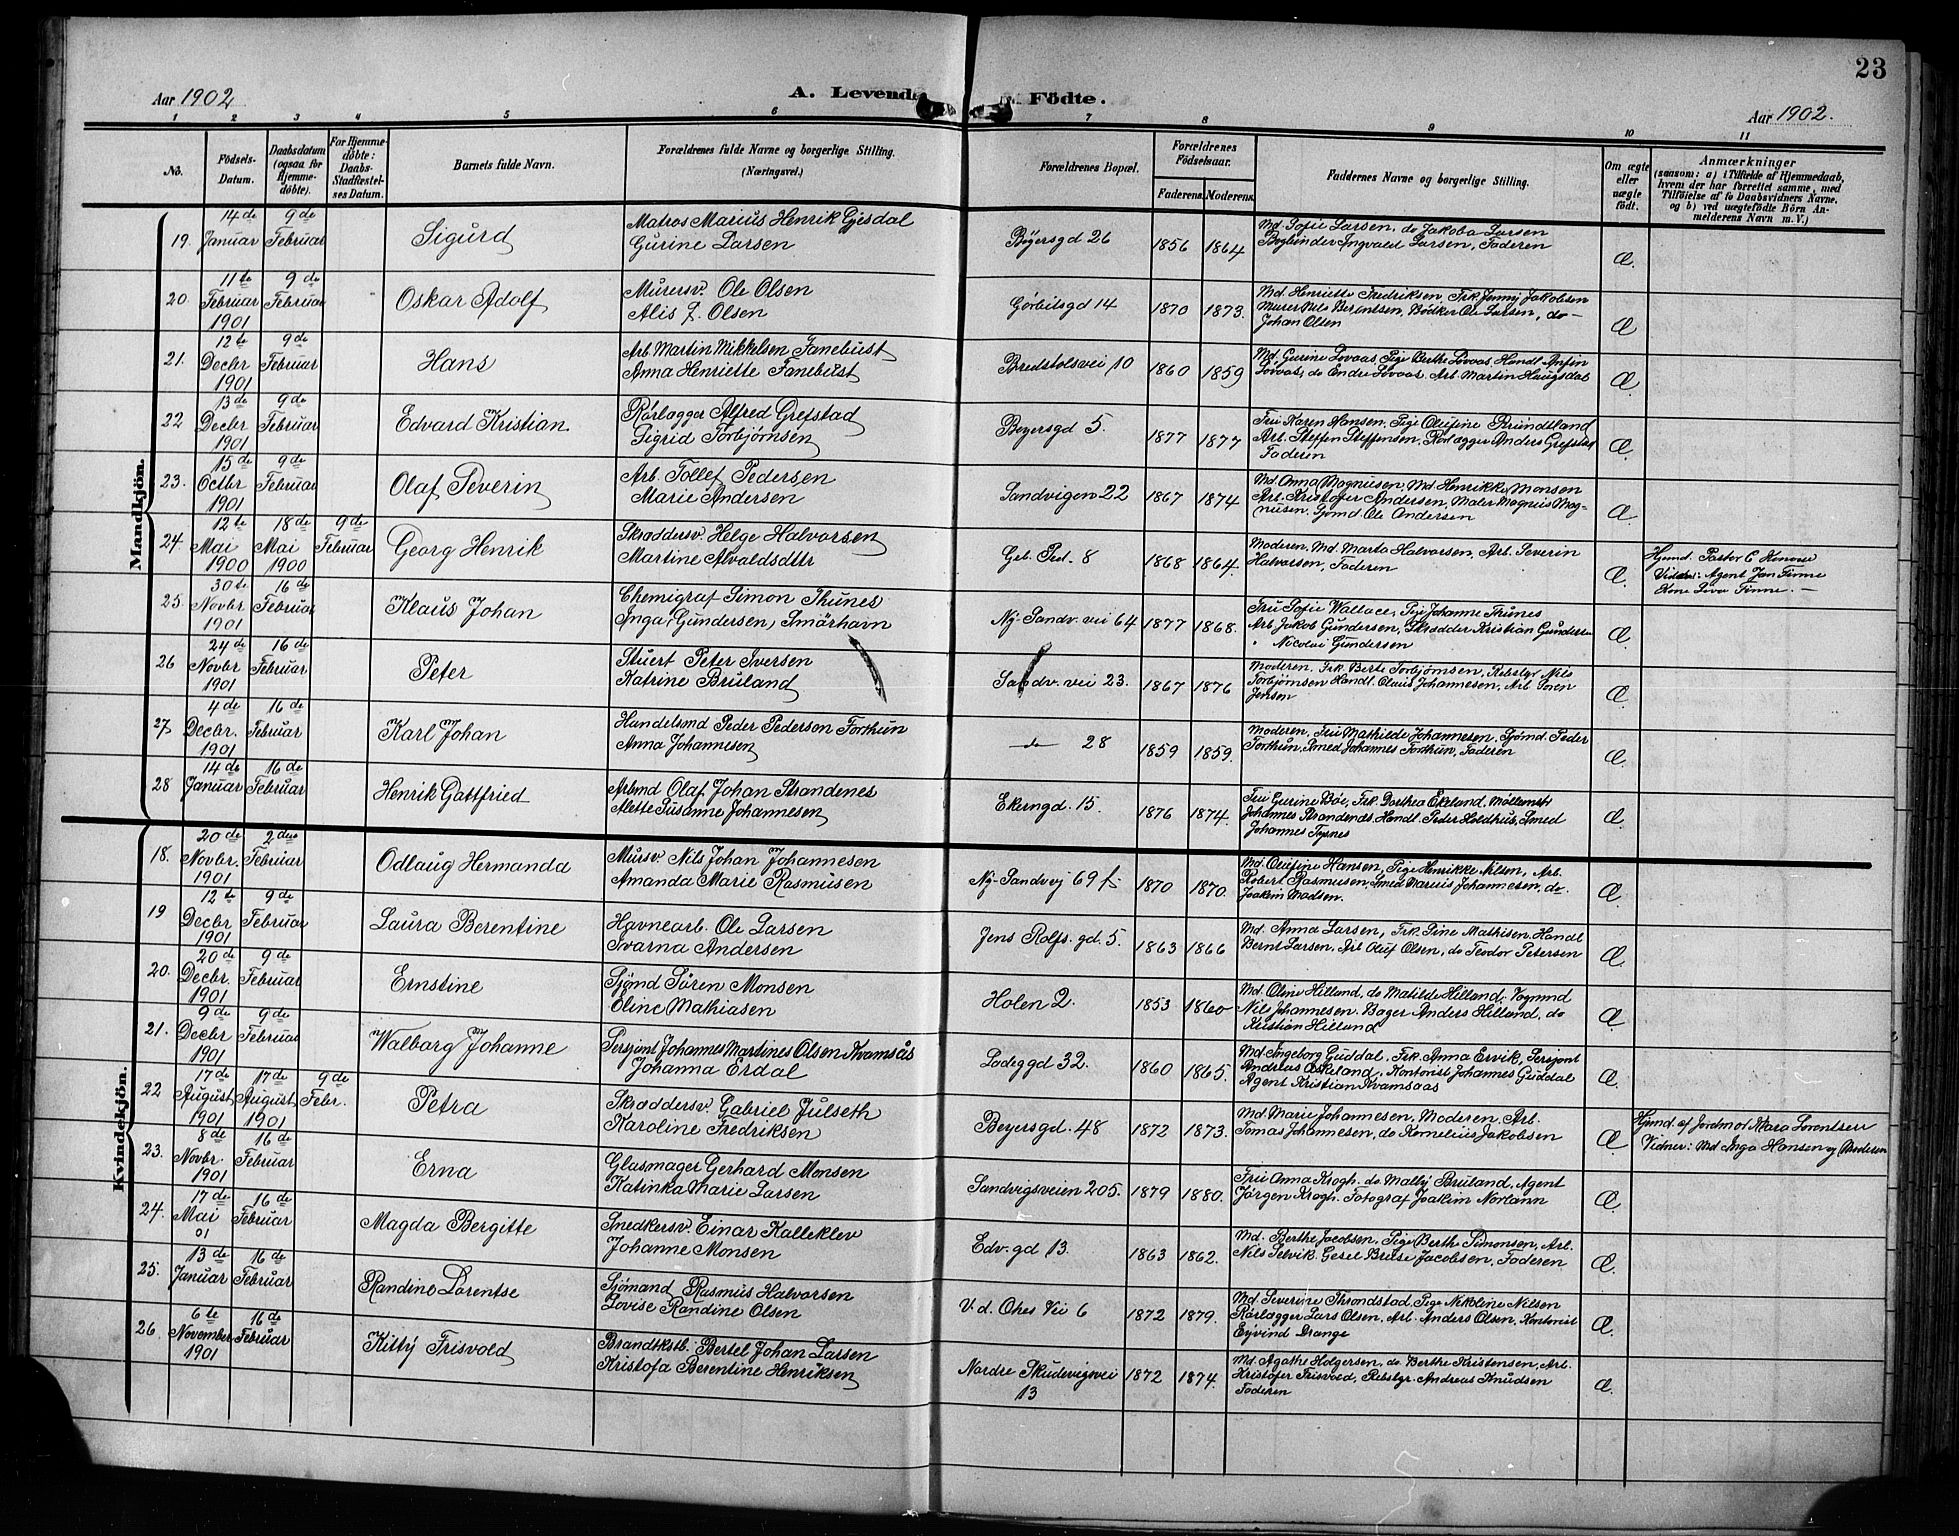 23
Aar 1902
A. Levende Födte.
Aar 1902.
1 2 3 4 5 6 7 8 9 10 11
No.
Födsels-Datum.
Daabsdatum (ogsaa for Hjemmedöbte).
For Hjemmedöbte: Daabs-Stadfæstelses Datum.
Barnets fulde Navn.
Forældrenes fulde Navne og borgerlige Stilling. (Næringsvei.)
Forældrenes Bopæl.
Forældrenes Födselsaar.
Faderens. Moderens.
Faddernes Navne og borgerlige Stilling.
Om ægte eller uægte födt.
Anmærkninger
(saasom: a) i Tilfælde af Hjemmedaab, hvem der har forrettet samme, med Tilföielse af to Daabsvidners Navne, og b) ved uægtefödte Börn Anmelderens Navn m. V.)
Mandkjön.
19. 14de Januar 9de Februar Sigurd
Matros Marius Henrik Gjesdal
Gurine Larsen
Bøyersgd 26 1856 1864
Md Sofie Larsen, do Jakoba Larsen
Bogbinder Ingvald Larsen, Faderen
Æ.
20. 11te Februar 1901 9de Februar Oskar Adolf
Murersv. Ole Olsen
Alis J. Olsen
Görbitsgd 14 1870 1873.
Md. Henriette Fredriksen, Frk. Jenny Jakobsen
Murer Nils Berentsen, Bödker Ole Larsen, do
Johan Olsen
Æ
21. 12te Decbr 1901 9de Februar Hans
Arb Martin Mikkelsen Fanebust
Anna Henriette Fanebust
Bredstolsvei 10 1860 1859
Md. Gurine Lovaas, Pige Berthe Lovaas, Handl. Anfin
Lovaas, do Endre Lovaas Arb. Martin Haugsdal
Æ
22 13de Decbr 1901 9de Februar Edvard Kristian
Rörlægger Alfred Grefstad
Sigrid Torbjørnsen
Beyersgd 5. 1877 1877
Fru Karen Hansen, Pige Olufine Brundtland
Arb. Steffen Steffensen, Rörlægger Anders Grefstad
Faderen
Æ.
23. 15de Octbr 1901 9de Februar Olaf Severin
Arb. Tollef Pedersen
Marie Andersen
Sandvigen 22 1867 1874
Md Anna Magnusen, Md. Henrikke Monsen
Arb. Kristofer Andersen, Maler Magnus Mag-
nusen. Sjømd. Ole Andersen
Æ.
24. 12te Mai 1900 18de Mai 1900 9de Februar Georg Henrik
Skræddersv. Helge Halvorsen
Martine Alvaldsdttr
Geb. Ped. 8 1868 1864.
Moderen, Md. Marta Halvorsen, Arb. Severin
Halvorsen, Faderen
Æ.
Hjmd. Pastor C
Vidner: Agent Jan Finne
Kone Finne. —
25. 30te Novbr 1901 16de Februar Klaus Johan
Chemigraf Simon Thunes
Inga Gundersen, Smörhavn
Ny-Sandv. vei 64 1877 1868.
Fru Sofie Wallace, Pige Johanne Thunes
Arb Jakob Gundersen, Skrædder Kristian Gunderse
" Nicolai Gundersen
Æ
26 24de Novbr 1901 16de Februar Peter
Stuert Peter Iversen
Katrine Bruland
Sandv. vei 23. 1867 1876
Moderen, Frk. Berte Torbjørnsen, Rebslgr Nils
Torbjørnsen Handl. Claus Johannesen, Arb. Søren
Jensen
Æ
27 4de Decbr. 1901 16de Februar Karl Johan
Handelsmd Peder Pedersen Forthun
Anna Johannesen
do 28 1859 1859.
Moderen, Fru Mathilde Johannesen, Sjømd. Peder
Forthun, Smed Johannes Forthun, Faderen
Æ
28 14de Januar 16de Februar Henrik Gattfried
Arbmd Olaf Johan Strandenes
Alette Susanne Johannesen
Ekerngd. 15 1876 1874.
Fru Gurine Bøe, Frk. Dorthea Ekeland, Møllemstr
Johannes Strandenæs Handl. Peder Holdhus, Smed
Johannes Tysnes
Æ
Kvindekjön.
18. 20de Novbr. 1901 2den Februar Odlaug Hermanda
Mursv Nils Johan Johannesen
Amanda Marie Rasmusen
Ny-Sandvj 69 f. 1870 1870.
Md. Olufine Hansen, Pige Henrikke Nilsen, Arb.
Robert Rasmusen, Smed Marius Johannesen, do.
Joakim Madsen.
Æ
19 12te Decbr 1901 9de Februar Laura Berentine
Havnearb. Ole Larsen
Svarna Andersen
Jens Rolfs. gd. 5. 1863 1866
Md. Anna Larsen, Frk. Sine Mathisen. Handl
Bernt Larsen, Arb Oluf Olsen, do Teodor Petersen
Æ.
20. 20de Decbr. 1901 9de Februar Ernstine
Sjømd Søren Monsen
Eline Mathiasen
Holen 2. 1853 1860
Md. Oline Hilland, do Matilde Hilland, Vognmd
Nils Johannesen. Bager Anders Hilland, do
Kristian Hilland
Æ
21. 9de Decbr 1901 9de Februar Walborg Johanne
Sersjant Johannes Martines Olsen Kvamsås
Johanna Erdal
Ladeggd 32. 1860 1865.
Md Ingeborg Guddal, Frk. Anna Ervik, Sersjant
Andreas Askeland, Kontorist Johannes Guddal
Agent Kristian Kvamsaas
Æ.
22 17de August 1901 17de August 1901 9de Febr. Petra
Skræddersv. Gabriel Julseth
Karoline Fredriksen
Beyersgd. 48 1872 1873.
Md Marie Johannesen, Moderen. Arb.
Tomas Johannesen, do Kornelius Jakobsen
Æ
Hjmd. af Jordmor Mara Lorentsen
Vidner: Md Inga Hansen og Moderen
23. 8de Novbr. 1901 16de Februar Erna
Glasmager Gerhard Monsen
Katinka Marie Larsen
Sandvigsveien 205. 1879 1880.
Frü Anna Krogh. do Mally Bruland, Agent
Jörgen Krogh. Fotograf Joakim Normann
Æ.
24. 17de Mai 01 16de Februar Magda Bergitte
Snedkersv. Einar Kalleklev
Johanne Monsen
Edv. gd 13. 1863 1862.
Md. Berthe Jacobsen, Pige Berthe Simonsen, Arb.
Nils Selvik. Gesel Brede Jacobsen, Faderen
Æ.
25. 13de Januar 16de Februar Randine Lorentse
Sjømand Rasmus Halvorsen
Lovise Randine Olsen
V. d. Ohes Vei 6 1872 1879.
Md Severine Throndstad, Pige Nikoline Nilsen
Rörlægger Lars Olsen, Arb. Anders Olsen, Kontorist
Eyvind Drange
Æ.
26. 6te November 1901 16de Februar Kitty Frisvold
Brandkstb. Bertel Johan Larsen
Kristofa Berentine Henriksen
Nordre Skudevigsvei 13 1872 1874.
Md. Agathe Holgersen, do Berthe Kristensen, Arb.
Kristofer Frisvold, Rebslgr. Andreas Knudsen
Faderen
Æ.